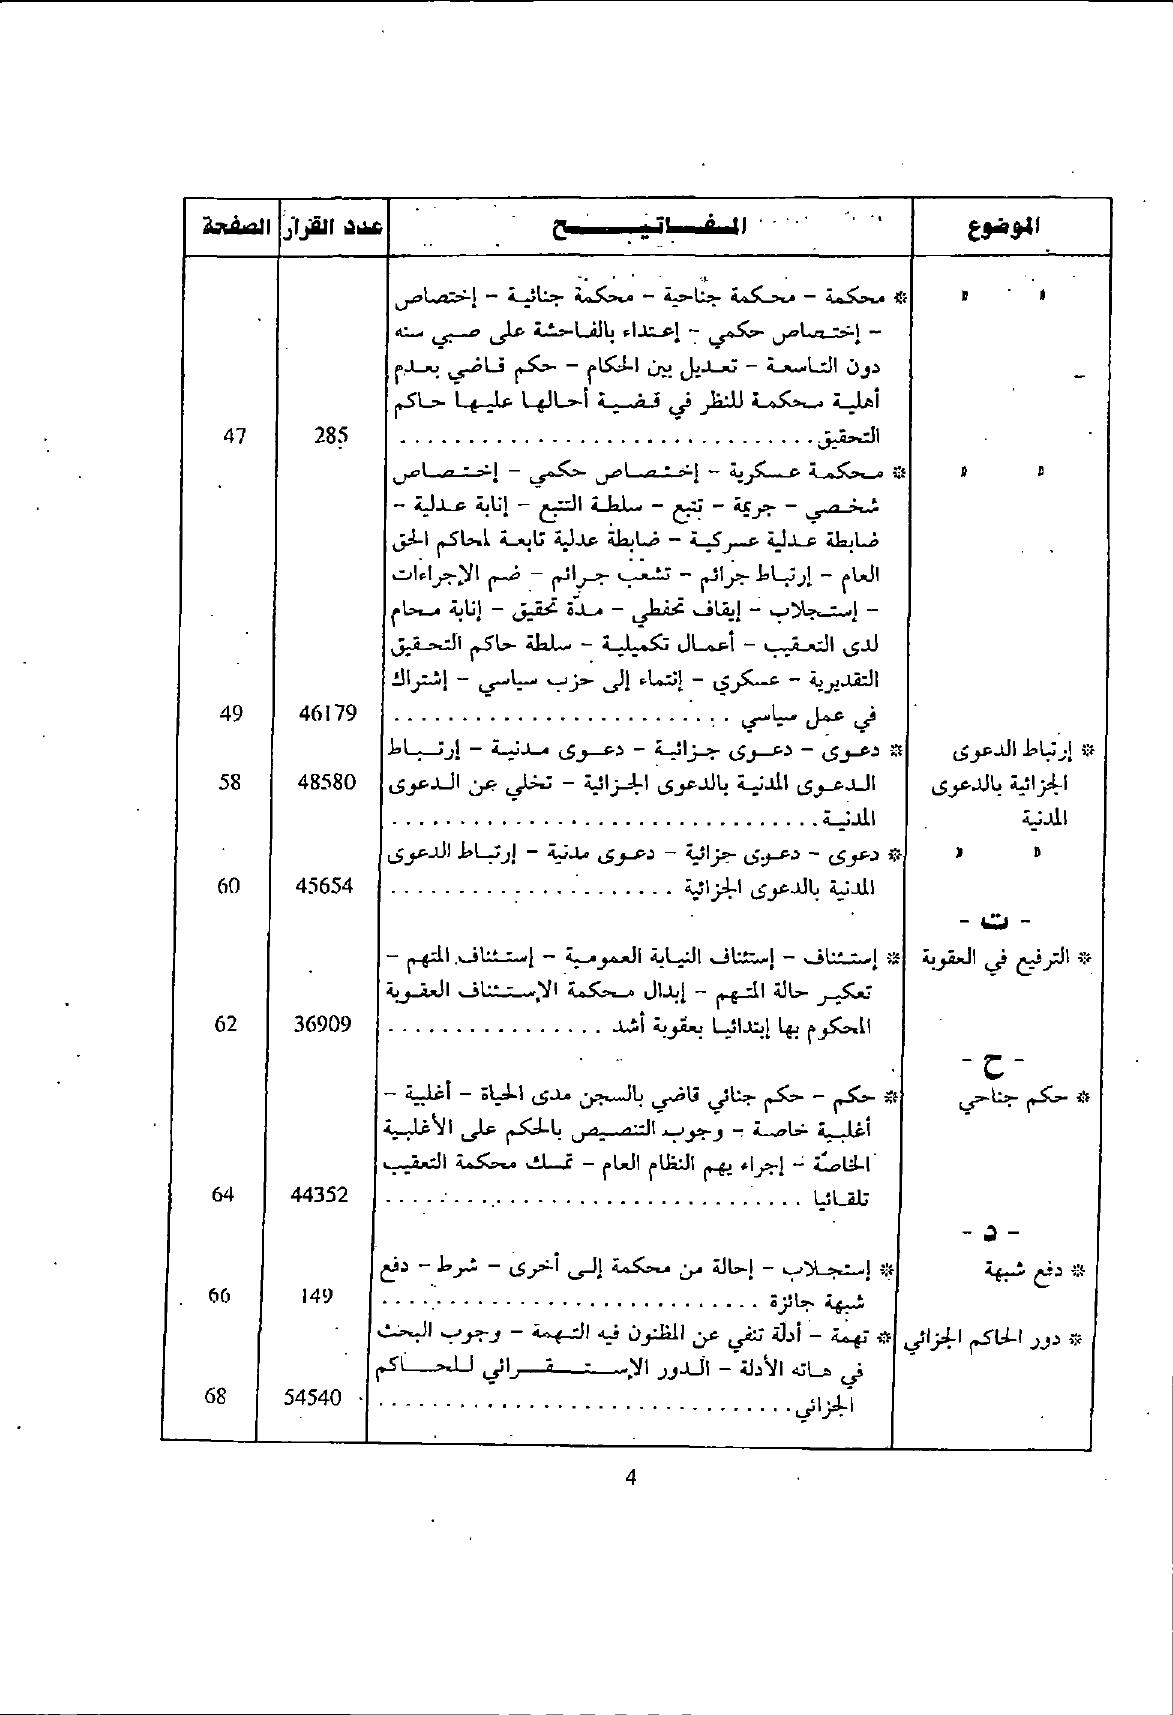 الموضوع المفـاتيـــح عدد القرار الصفحة
" " * محكمة - محكمة جناحية - محكمة جنائية - إختصاص
- إختصاص حكمي - إعتداء بالفاحشة على صبي سنه
دون التاسعة - تعديل بين الحكام - حكم قاضي بعدم
أهلية محكمة للنظر في قضية أحالها عليها حاكم
التحقيق............................... 285 47
" " * محكمة عسكرية - إختصاص حكمي - إختصاص
شخصي - جريمة - تتبع - سلطة التتبع - إنابة عدلية -
ضابطة عدلية عسركية - ضابطة عدلية تابعة لمحاكم الحق
العام - إرتباط جرائم - تشعب جرائم - ضم الإجراءات
- إستجلاب - إيقاف تحفطي - مدّة تحقيق - إنابة محام
لدى التعقيب - أعمال تكميلية - سلطة حاكم التحقيق
التقديرية - عسكري - إنتماء إلى حزب سياسي - إشتراك
في عمل سياسي ......................... 46179 49
* إرتباط الدعوى * دعوى - دعوى جزائية - دعوى مدنية - إرتباط
الجزائية بالدعوى الدعوى المدنية بالدعوى الجزائية - تخلي عن الدعوى 48580 58
المدنية المدنية................................
" " * دعوى - دعوى جزائية - دعوى مدنية - إرتباط الدعوى
المدنية بالدعوى الجزائية ..................... 45654 60
- ت -
* الترفيع في العقوبة * إستئناف - إستئناف النيابة العمومية - إستئناف المتهم -
تعكير حالة المتهم - إبدال محكمة الإستئناف العقوبة
المحكوم بها إبتدائيا بعقوبة أشد ................ 36909 62
- ح -
* حكم جناحي * حكم - حكم جنائي قاضي بالسجن مدى الحياة - أغلبية -
أغلبية خاصة - وجوب التنصيص بالحكم على الأغلبية
الخاصّة - إجراء يهم النظام العام - تمسك محكمة التعقيب
تلقائيا ............................... 44352 64
- د -
* دفع شبهة * إستجلاب - إحالة من محكمة إلى أخرى - شرط - دفع
شبهة جائزة ............................ 149 66
* دور الحاكم الجزائي * تهمة - أدلة تنفي عن المظنون فيه التهمة - وجوب البحث
في هاته الأدلة - الدور الإستقرائي للحاكم
الجزائي............................... 54540 68
4